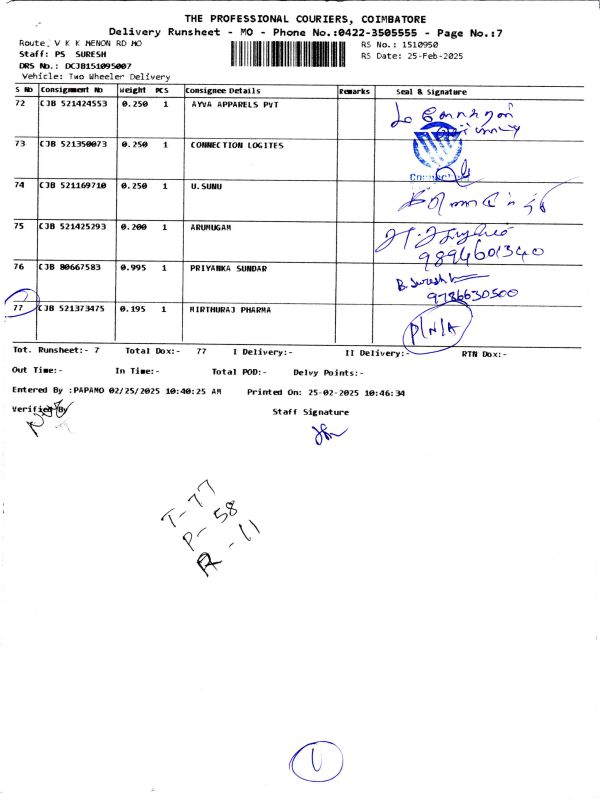 THE PROFESSIONAL COURIERS, COIMBATORE
Delivery Runsheet - MO - Phone No.:0422-3505555 - Page No.:7
Route. V K K MENON RD MO
RS No.: 1510950
Staff: PS SURESH
RS Date: 25-Feb-2025
DRS No.: DCJB151095007
Vehicle: Two Wheeler Delivery
S No Consignment No Weight PCS Consignee Details Remarks Seal & Signature
72 CJB 521424553 0.250 1 AYVA APPARELS PVT
73 CJB 521350073 0.250 1 CONNECTION LOGITES
74 CJB 521169710 0.250 1 U.SUNU
75 CJB 521425293 0.200 1 ARUMUGAM
9894601340
76 CJB 80667583 0.995 1 PRIYANKA SUNDAR
B. Suresh
9786630500
77 CJB 521373475 0.195 1 MIRTHURAJ PHARMA
P/N/A
Tot. Runsheet:- 7 Total Dox:- 77 I Delivery:- II Delivery:- RTN Dox:-
Out Time:- In Time:- Total POD:- Delvy Points:-
Entered By :PAPAMO 02/25/2025 10:40:25 AM Printed On: 25-02-2025 10:46:34
Verified By
Staff Signature
T- 77
P- 58
R - 11